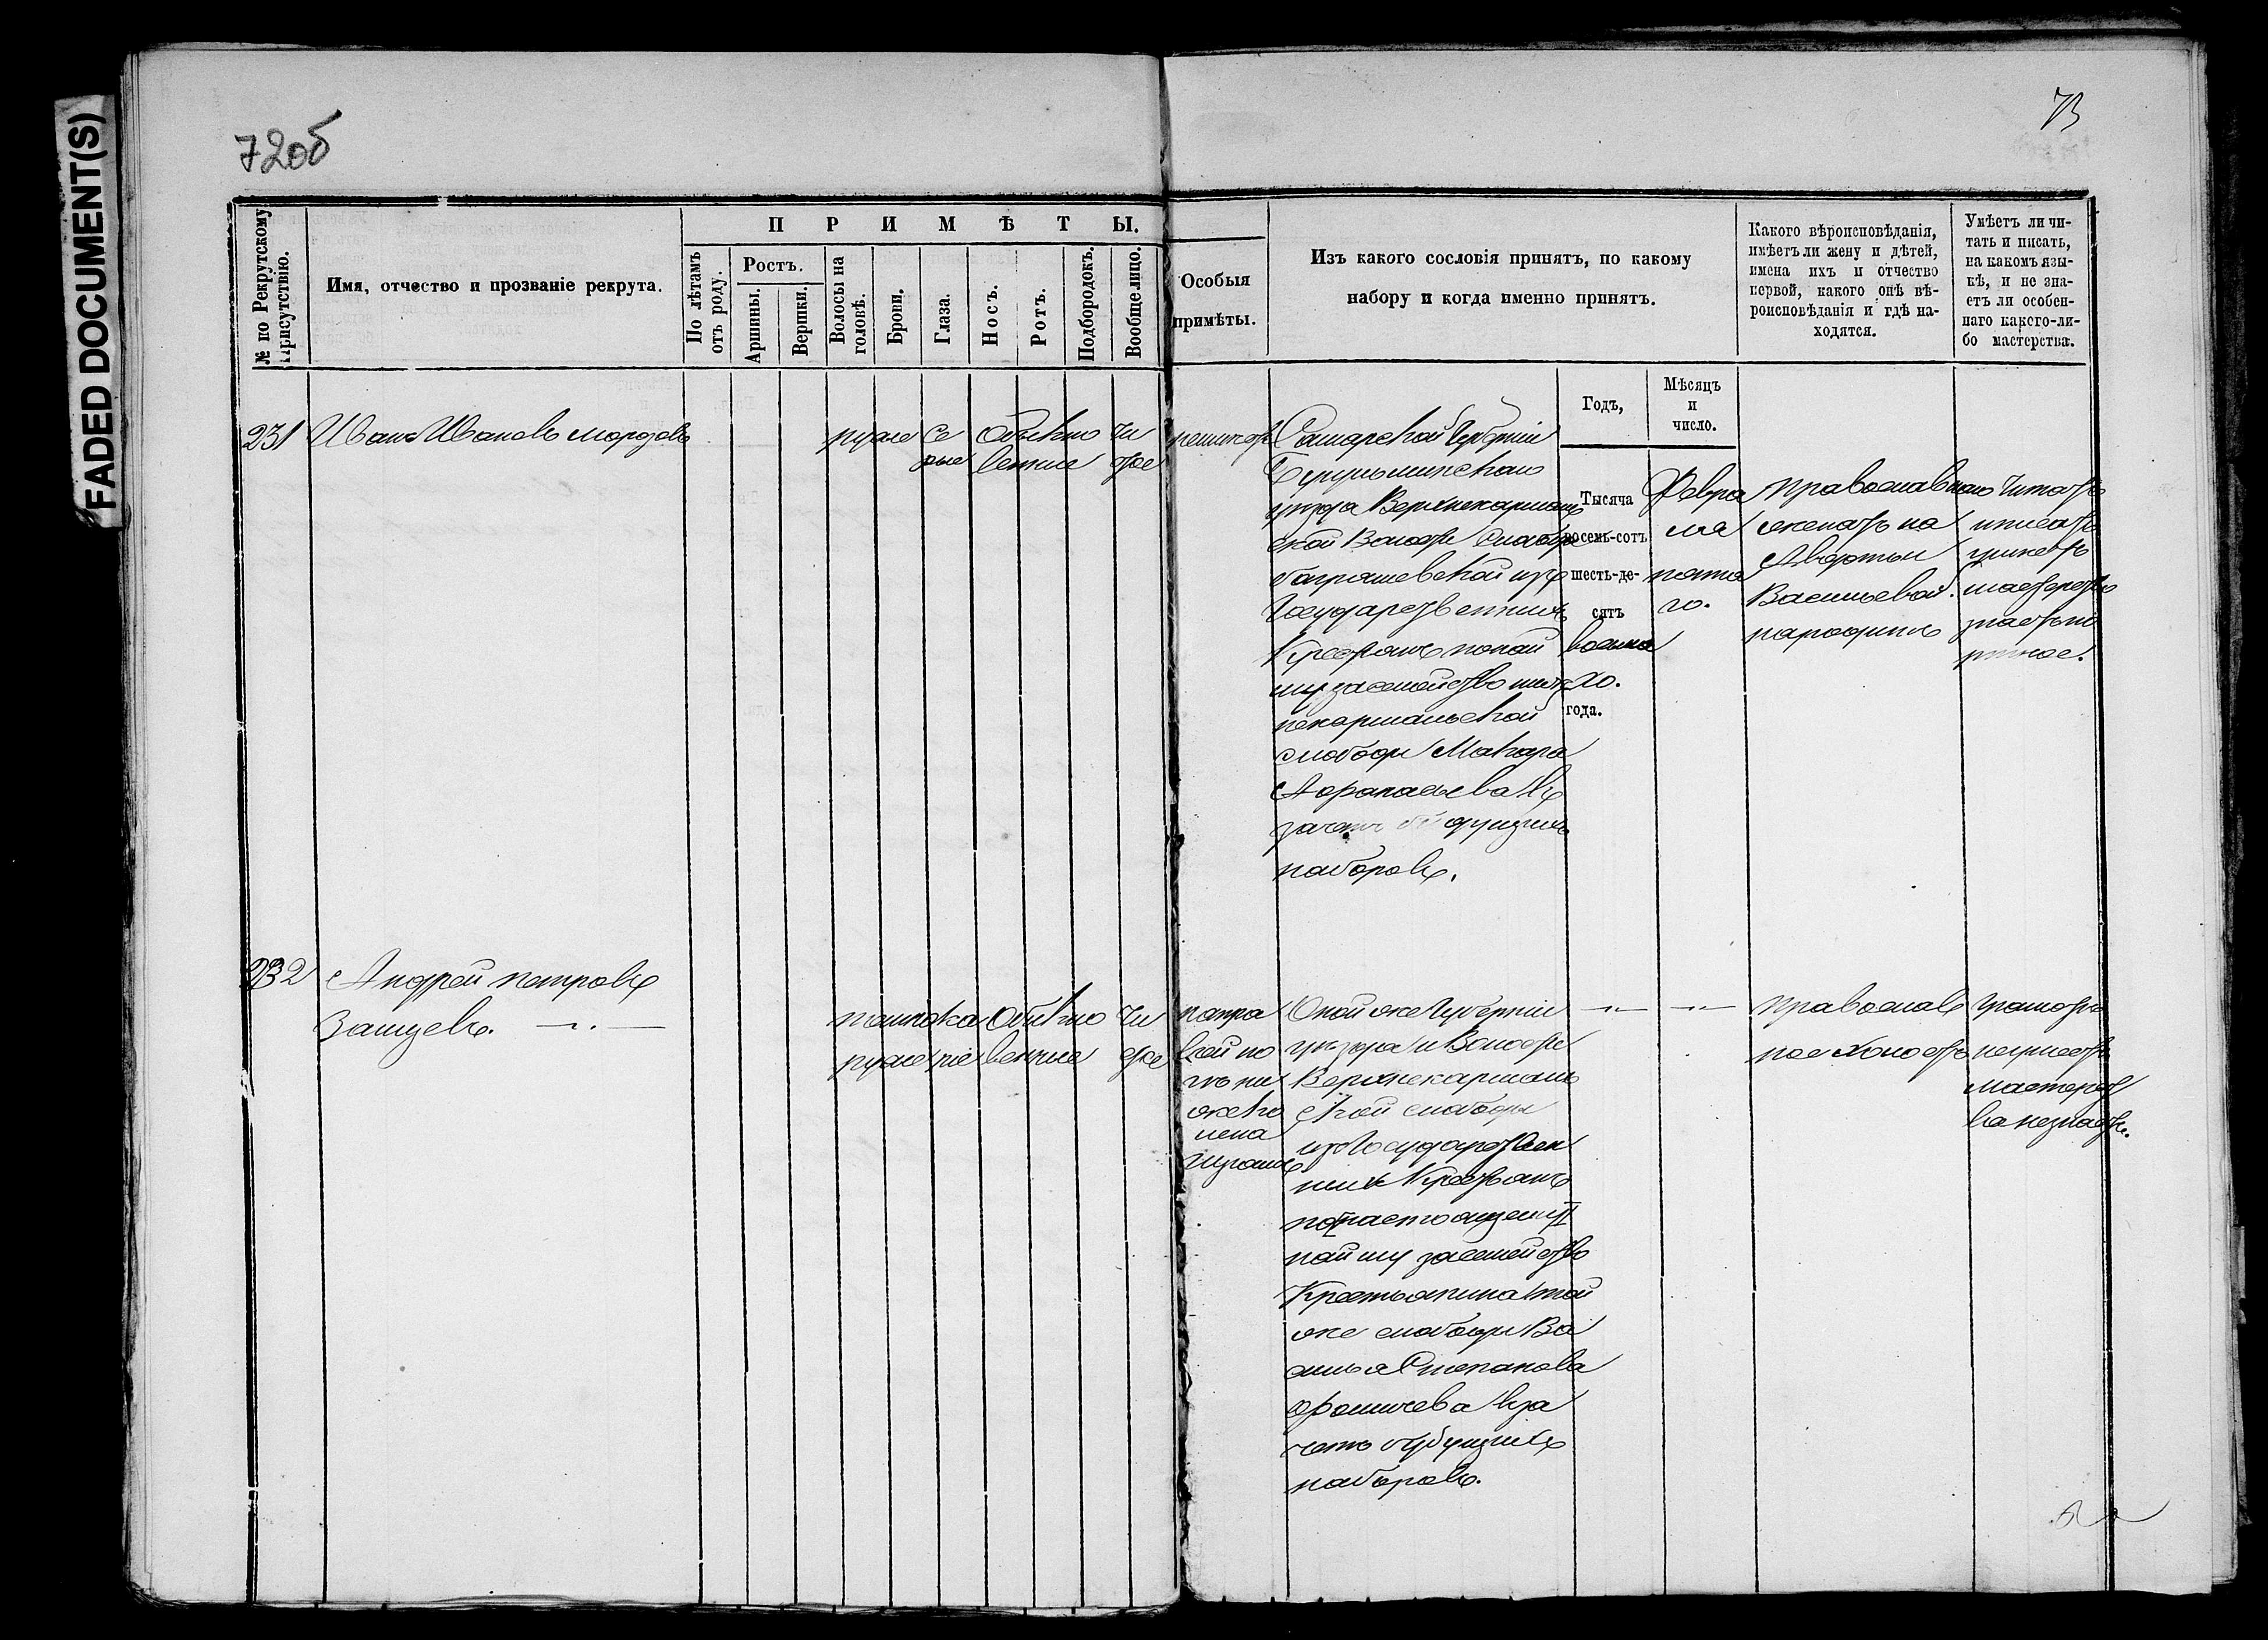 FADED DOCUMENT(S)
72об
73
№ по Рекрутскому Присутствію.
Имя, отчество и прозваніе рекрута.
ПРИМѢТЫ.
По лѣтамъ отъ роду.
Ростъ.
Аршины.
Вершки.
Волосы на головѣ.
Брови.
Глаза.
Носъ.
Ротъ.
Подбородокъ.
Вообще лицо.
Особыя
примѣты.
Изъ какого сословія принятъ, по какому
набору и когда именно принятъ.
Какого вѣроисповѣданія,
имѣетъ ли жену и дѣтей,
имена ихъ и отчество
первой, какого онѣ вѣ-
роисповѣданія и гдѣ на-
ходятся.
Умѣетъ ли чи-
тать и писать,
на какомъ язы-
кѣ, и не зна-
етъ ли особен-
наго какого-ли-
бо мастерства.
Годъ,
Мѣсяцъ
и
число.
231
Иванъ Ивановъ Морозовъ
русые
се
рые
обыкно
венные
чи
стое
Самарской Губерніи
Бугульминскаго
уѣзда Верхнекармаль
ской Волости Слободы
изъ
Государственныхъ
Крестьянъ по най
му за семейство
некармальской
слободы Макара
Афанасьева въ
зачетъ будущихъ
наборовъ.
Тысяча
восемь-сотъ
шесть-де-
сятъ
восьма
го.
года.
Февра
ля
пята
го.
Православнаго
женатъ на
Авдотьи
Васильевой.
на родинѣ
Читать
и писать
умѣетъ
мастерство
знаетъ
232
Андрей Петровъ
Зайцевъ.
темно
русые
ка
ріе
обыкно
венные
чи
стое
на пра
вой но
гѣ ни
же ко
лена
шрамъ
Оной же Губерніи
уѣзда и Волости
Верхнекармаль
ской слободы
изъ Государствен
ныхъ Крестьянъ
по настоящему
найму за семейство
Крестьянина той
же слободы Ва
силья Степанова
въ за
четъ будущихъ
наборовъ.
Православ
ное холостъ
Грамотѣ
не умеетъ
мастерст
ва не знаетъ.